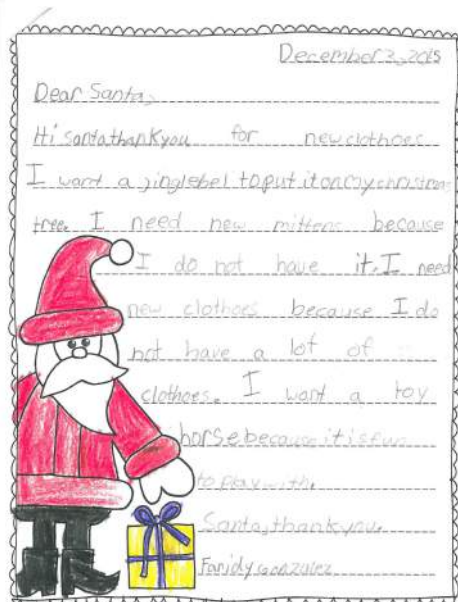 December 3, 2015
Dear Santa,
Hi santa thank you for new clothoes
I want a jinglebel to put it on my christmas
tree. I need new mittens because
I do not have it. I need
new clothoes because I do
not have a lot of
clothoes. I want a toy
horse because it is fun
to play with.
Santa, thank you.
Faridy Gonzalez